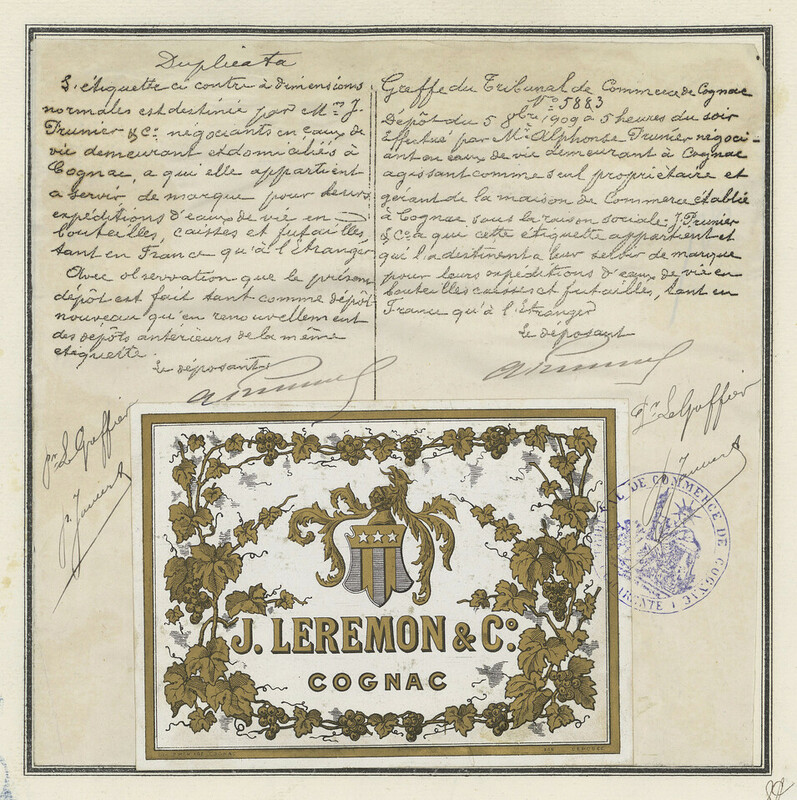 Duplicata
L'étiquette ci contre à dimensions
normales est destinée par Mrs J.
Prunier & Co. négociants en eaux de
vie demeurant et domiciliés à
Cognac, a qui elle appartient
a servir de marque pour leurs
expéditions d'eaux de vie en
bouteilles, caisses et futailles
tant en France qu'à l'étranger
Avec observation que le présent
dépôt est fait tant comme dépôt
nouveau qu'en renouvellement
des dépôts antérieurs de la même
étiquette.
Le déposant
Greffe du Tribunal de Commerce de Cognac
No. 5883
Dépôt du 5 8bre 1909 à 5 heures du soir
Effectué par Mr. Alphonse Prunier négoci-
ant en eaux de vie demeurant à Cognac
agissant comme seul propriétaire et
gérant de la maison de Commerce établie
à Cognac sous la raison sociale: J. Prunier
& Co. a qui cette étiquette appartient et
qui l'a destinent a leur servir de marque
pour leurs expéditions d'eaux de vie en
bouteilles caisses et futailles, tant en
France qu'à l'étranger
Le déposant
Pr. Le Greffier
Pr. Le Greffier
J. LEREMON & Co.
COGNAC
DE COMMERCE DE COGNAC